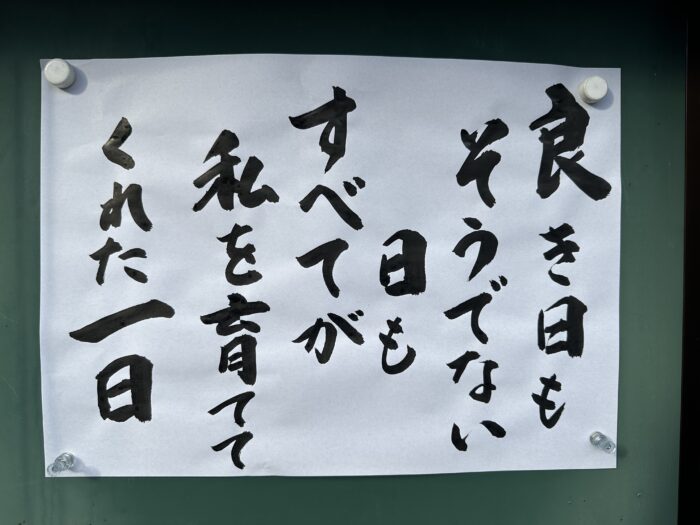 良き日も
そうでない
日も
すべてが
私を育てて
くれた一日